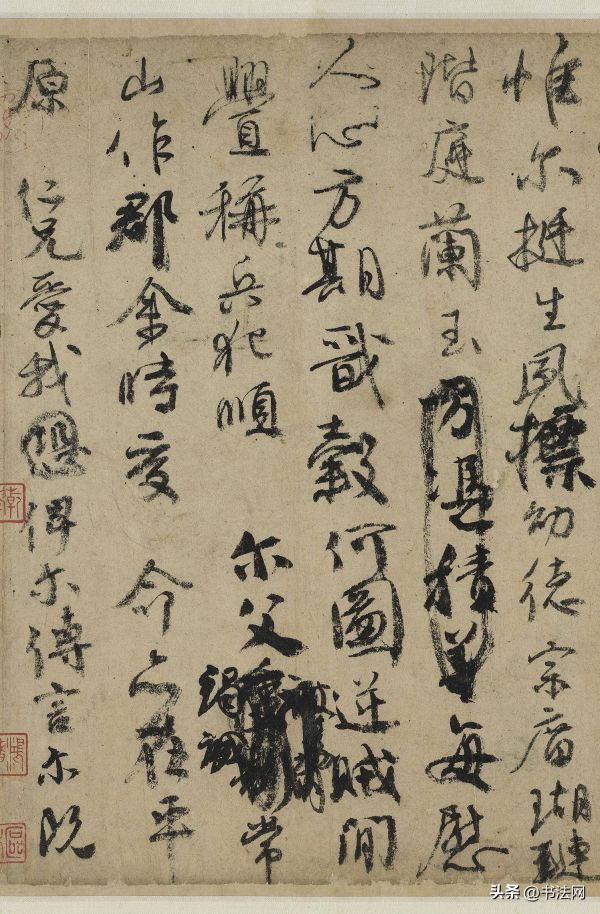 惟尔挺生夙標幼德宗廟瑚璉
階庭蘭玉方憑積善每慰
人心方期戩穀何圖逆賊閒
釁稱兵犯順 尔父竭誠常
山作郡余時受 命亦在平
原 仁兄愛我恐俾尔傳言尔既
头条 @书法网